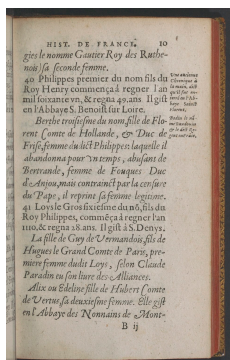 HIST. DE FRANCE. 10
gies le nomme Gautier Roy des Ruthe-
nois) sa seconde femme.
40 Philippes premier du nom fils du
Roy Henry commença à regner l'an
mil soixante vn, & regna 49. ans Il gist
en l'Abbaye S. Benoist sur Loire.
Berthe troisiesme du nom, fille de Flo-
rent Comte de Hollande, & Duc de
Frise, femme du dict Philippes: laquelle il
abandonna pour vn temps, abusant de
Bertrande, femme de Fouques Duc
d'Anjou, mais contrainct par la censure
du Pape, il reprint sa femme legitime.
41 Loys le Gros sixiesme du nõ, fils du
Roy Philippes, commẽça à regner l'an
1110, & regna 28. ans. Il gist à S. Denys.
La fille de Guy de Vermandois, fils de
Hugues le Grand Comte de Paris, pre-
miere femme dudit Loys, selon Claude
Paradin en son liure des Alliances.
Alix ou Edeline fille de Hubert Comte
de Vertus sa deuxiesme femme. Elle gist
en l'Abbaye des Nonnains de Mont-
B ij
Vne ancienne
Chronique à
la main, dict